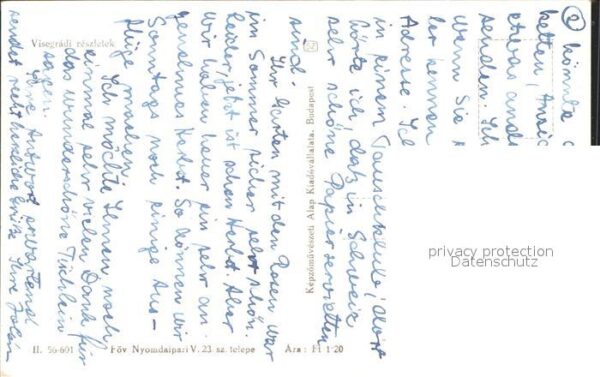 Visegrádi részletek
② könnte
ketten, Ansic
etwas ande
senden. Ich
Wenn Sie
ler kennen
Adresse. Ich
in einem Tauscherkreis! dort
hörte ich, daß in Schweiz
sehr schöne Papierservietten
sind.
Ihr Garten mit den Rosen war
im Sommer sicher sehr schön.
Leider, jetzt ist schon Herbst. Aber
wir haben heuer ein sehr an-
genehmes Herbst. So können wir
Sonntags noch einige Aus-
flüge machen.
Ich möchte Ihnen noch
einmal sehr vielen Dank für
das wunderschöne Tüchlein
sagen.
Ihre Antwort erwartend
sendet recht herzliche Grüße Ihre
Képzőművészeti Alap Kiadóvállalata, Budapest
II. 56-691 Főv Nyomdaipari V. 23 sz. telepe Ára: Ft 1·20
privacy protection
Datenschutz